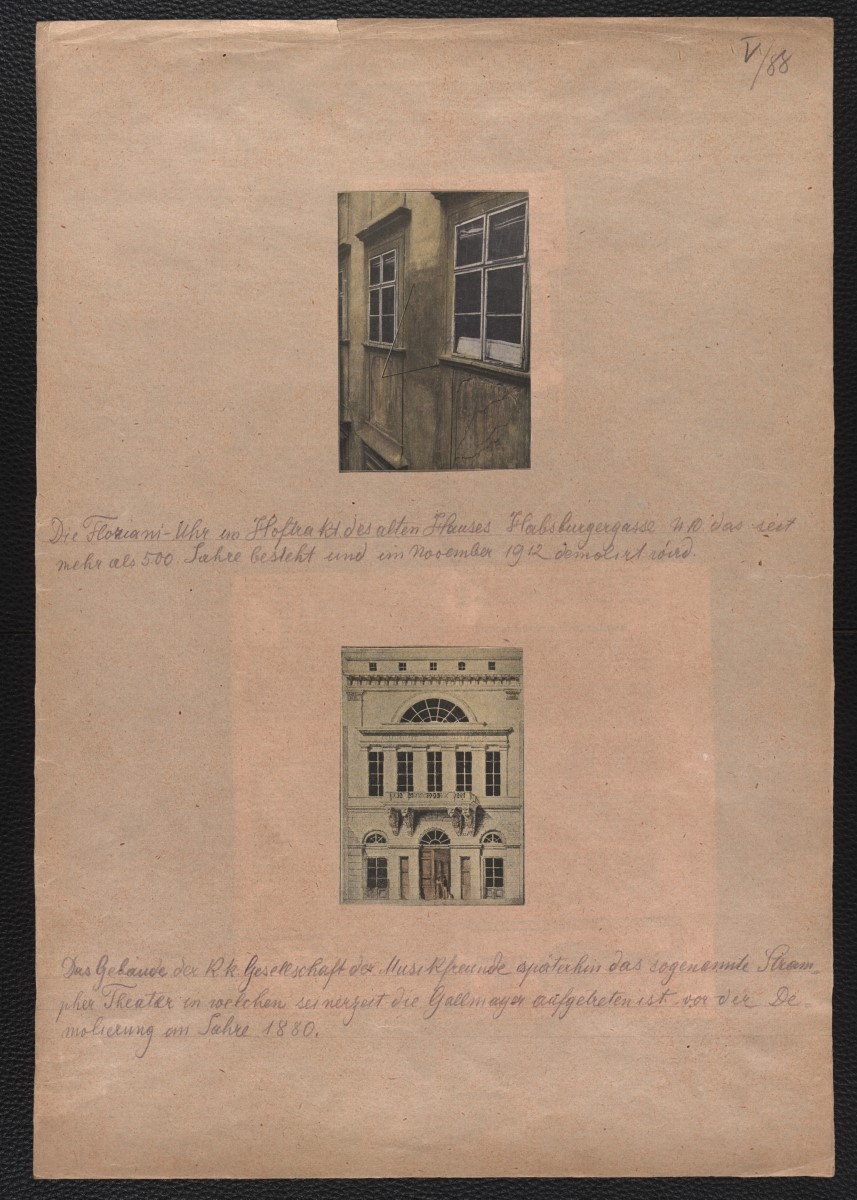 V/88
Die Floriani-Uhr im Hoftrakt des alten Hauses Habsburgergasse das seit
mehr als 500 Jahre besteht und im November 1912 demolirt wird.
Das Gebäude der k k Gesellschaft der Musikfreunde späterhin das sogenannte Stram-
pfer Theater in welchen seinerzeit die Gallmayer aufgetreten ist vor der De-
molierung im Jahre 1880.